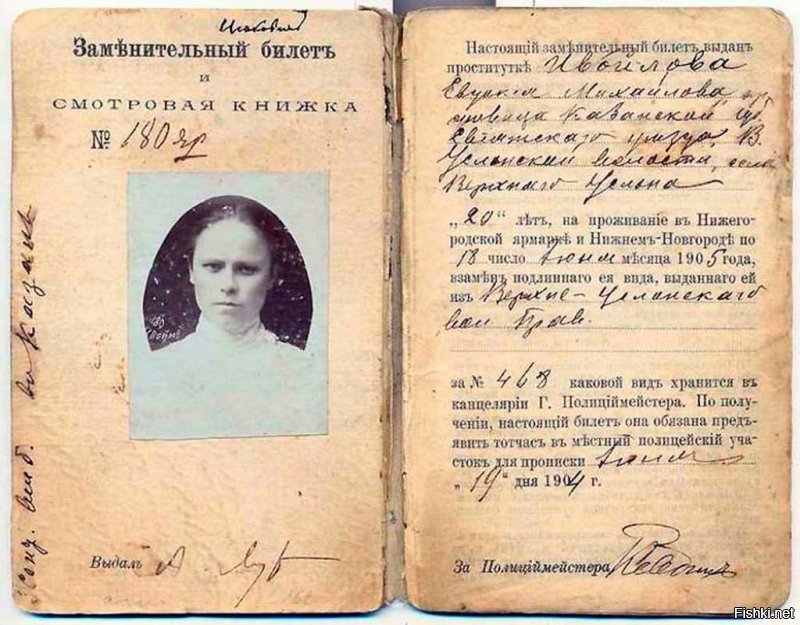 Замѣнительный билетъ
и
СМОТРОВАЯ КНИЖКА
№ 180 яр
180
Выдалъ
Настоящій замѣнительный билетъ выданъ
проституткѣ Ивойлова
Евдокія Михайлова
Казанской губ.
Свіяжскаго уѣзда, В.
Услонской волости, села
Верхняго Услона
„20“ лѣтъ, на проживаніе въ Нижего-
родской ярмаркѣ и Нижнемъ-Новгородѣ по
18 число Іюня мѣсяца 1905 года,
взамѣнъ подлиннаго ея вида, выданнаго ей
изъ Верхне-Услонскаго
вол. Прав.
за № 468 каковой видъ хранится въ
канцеляріи Г. Полиціймейстера. По полу-
ченіи, настоящій билетъ она обязана предъ-
явить тотчасъ въ мѣстный полицейскій уча-
стокъ для прописки Іюня
„19“ дня 1904 г.
За Полиціймейстера
Fishki.net